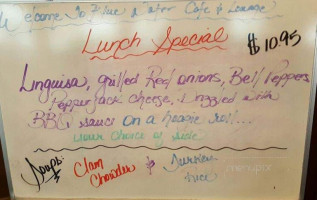 Welcome To Blue Water Cafe & Lounge
Lunch Special
$10.95
Linguisa, grilled Red onions, Bell Peppers
Pepper Jack cheese, Drizzled with
BBQ sauce on a hoagie roll...
your choice of side
Soups:
Clam Chowder &